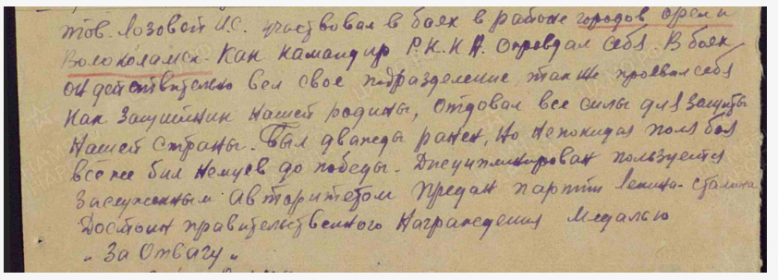 тов. Лозовой И.С. участвовал в боях в районе городов орел и
Волоколамск. Как командир Р.К.К.А. оправдал себя. В боях
он действительно вел свое подразделение также проевил себя
как защитник нашей родины, отдовал все силы для защиты
нашей страны. Был дважды ранен, но непокидая поля боя
всё же бил немцев до победы. Дисциплинирован пользуется
заслуженным авторитетом предан партии Ленина-Сталина
Достоин правительственного награждения медалью
„За Отвагу„